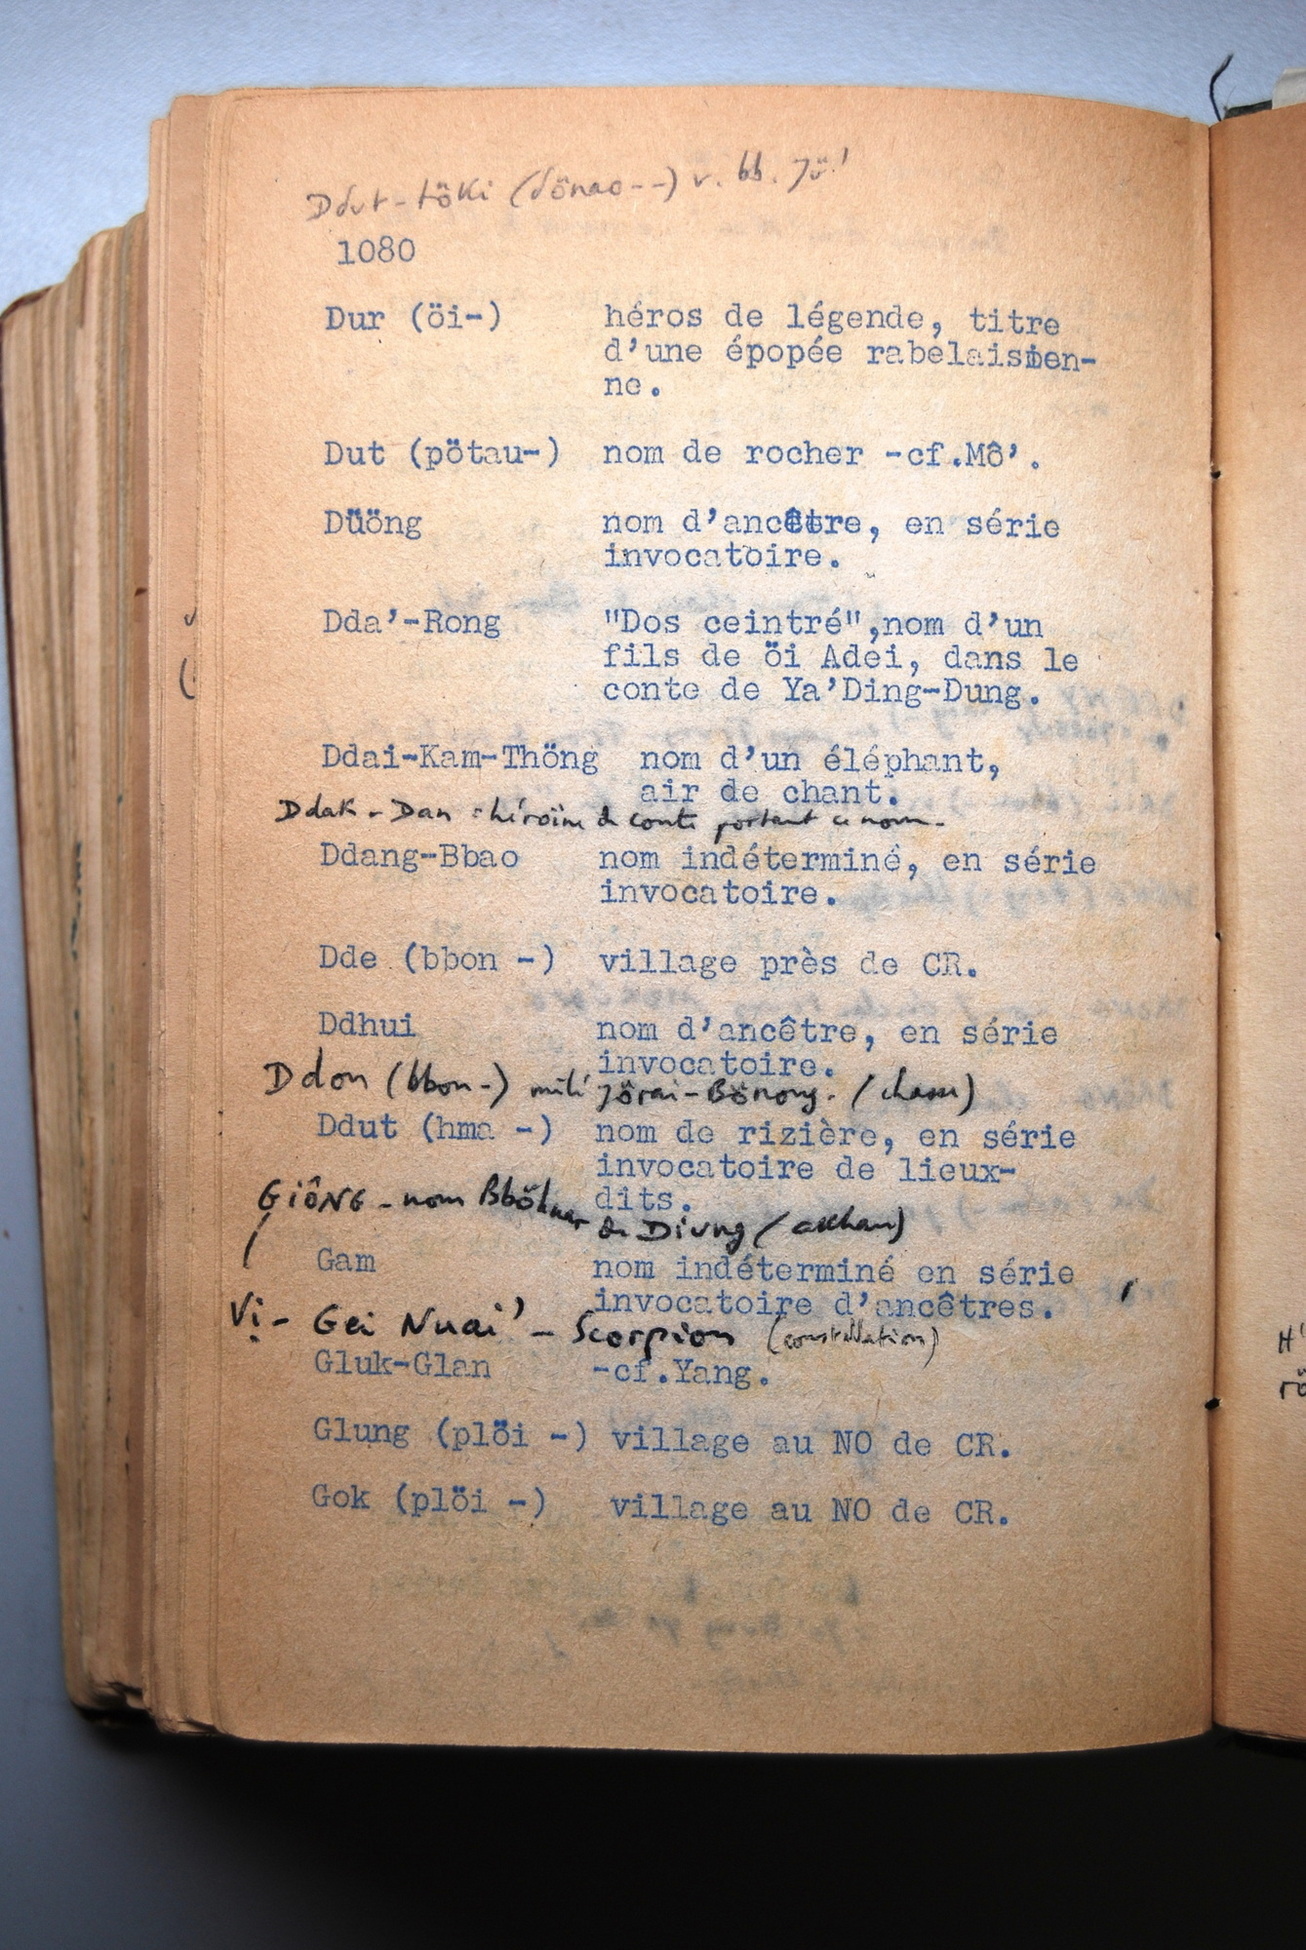 Ddut-töki (dönao--) v. bb. Jü'
1080
Dur (öi-) héros de légende, titre
d'une épopée rabelaisien-
ne.
Dut (pötau-) nom de rocher -cf.Mô'.
Düöng nom d'ancêtre, en série
invocatoire.
Dda'-Rong "Dos ceintré",nom d'un
fils de öi Adei, dans le
conte de Ya'Ding-Dung.
Ddai-Kam-Thöng nom d'un éléphant,
air de chant.
Ddak - Dan = héroïne de conte portant ce nom.
Ddang-Bbao nom indéterminé, en série
invocatoire.
Dde (bbon -) village près de CR.
Ddhui nom d'ancêtre, en série
invocatoire.
Ddon (bbon-) Jörai-Bönong.
Ddut (hma -) nom de rizière, en série
invocatoire de lieux-
dits.
GiôNG - nom
de Divng
Gam nom indéterminé en série
invocatoire d'ancêtres.
Vi - Gei Nuai' - Scorpion (constellation)
Gluk-Glan -cf.Yang.
Glung (plöi -) village au NO de CR.
Gok (plöi -) village au NO de CR.